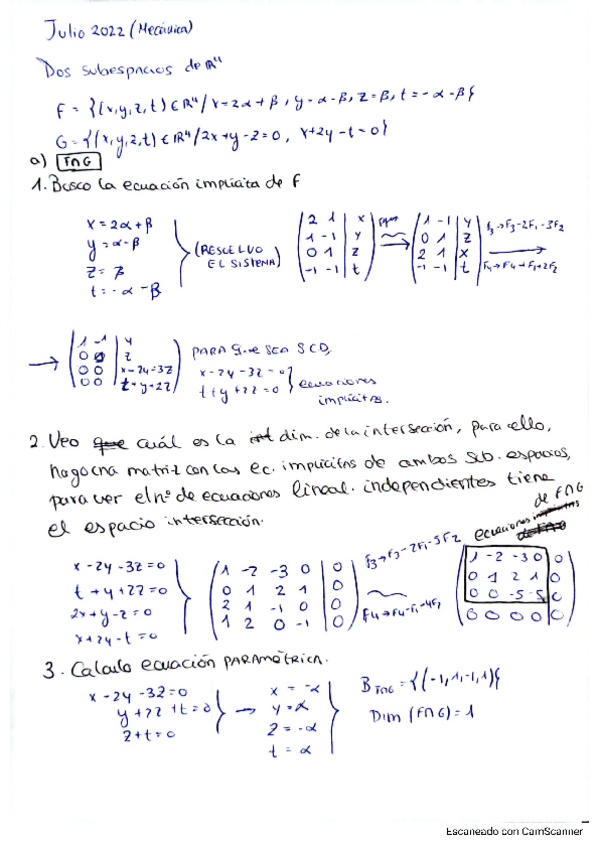 Julio 2022 (Mecánica)
Dos subespacios de ℝ⁴
F = {(x,y,z,t) ∈ ℝ⁴ / x=2α+β, y=α-β, z=β, t=-α-β}
G = {(x,y,z,t) ∈ ℝ⁴ / 2x+y-z=0, x+2y-t=0}
a) F∩G
1. Busco la ecuación implícita de F
x = 2α+β
y = α-β
z = β
t = -α-β
(RESUELVO EL SISTEMA)
2 1 | x
1 -1 | y
0 1 | z
-1 -1 | t
1 -1 | y
0 1 | z
2 1 | x
-1 -1 | t
F₃→F₃-2F₁-3F₂
F₄→F₄+F₁+2F₂
1 -1 | y
0 0 | z
0 0 | x-2y-3z
0 0 | t+y+2z
PARA que sea SCD,
x-2y-3z=0
t+y+2z=0
ecuaciones
implícitas.
2. Veo cuál es la dim. de la intersección, para ello,
hago una matriz con las ec. implícitas de ambos sub. espacios,
para ver el nº de ecuaciones lineal. independientes tiene
el espacio intersección.
ecuaciones de F∩G
x-2y-3z=0
t+y+2z=0
2x+y-z=0
x+2y-t=0
1 -2 -3 0 | 0
0 1 2 1 | 0
2 1 -1 0 | 0
1 2 0 -1 | 0
F₃→F₃-2F₁-5F₂
F₄→F₄-F₁-4F₂
1 -2 -3 0 | 0
0 1 2 1 | 0
0 0 -5 -5 | 0
0 0 0 0 | 0
3. Calculo ecuación PARAMÉTRICA.
x-2y-3z=0
y+2z+t=0
z+t=0
x = -α
y = α
z = -α
t = α
B F∩G = {(-1,1,-1,1)}
Dim (F∩G) = 1
Escaneado con CamScanner